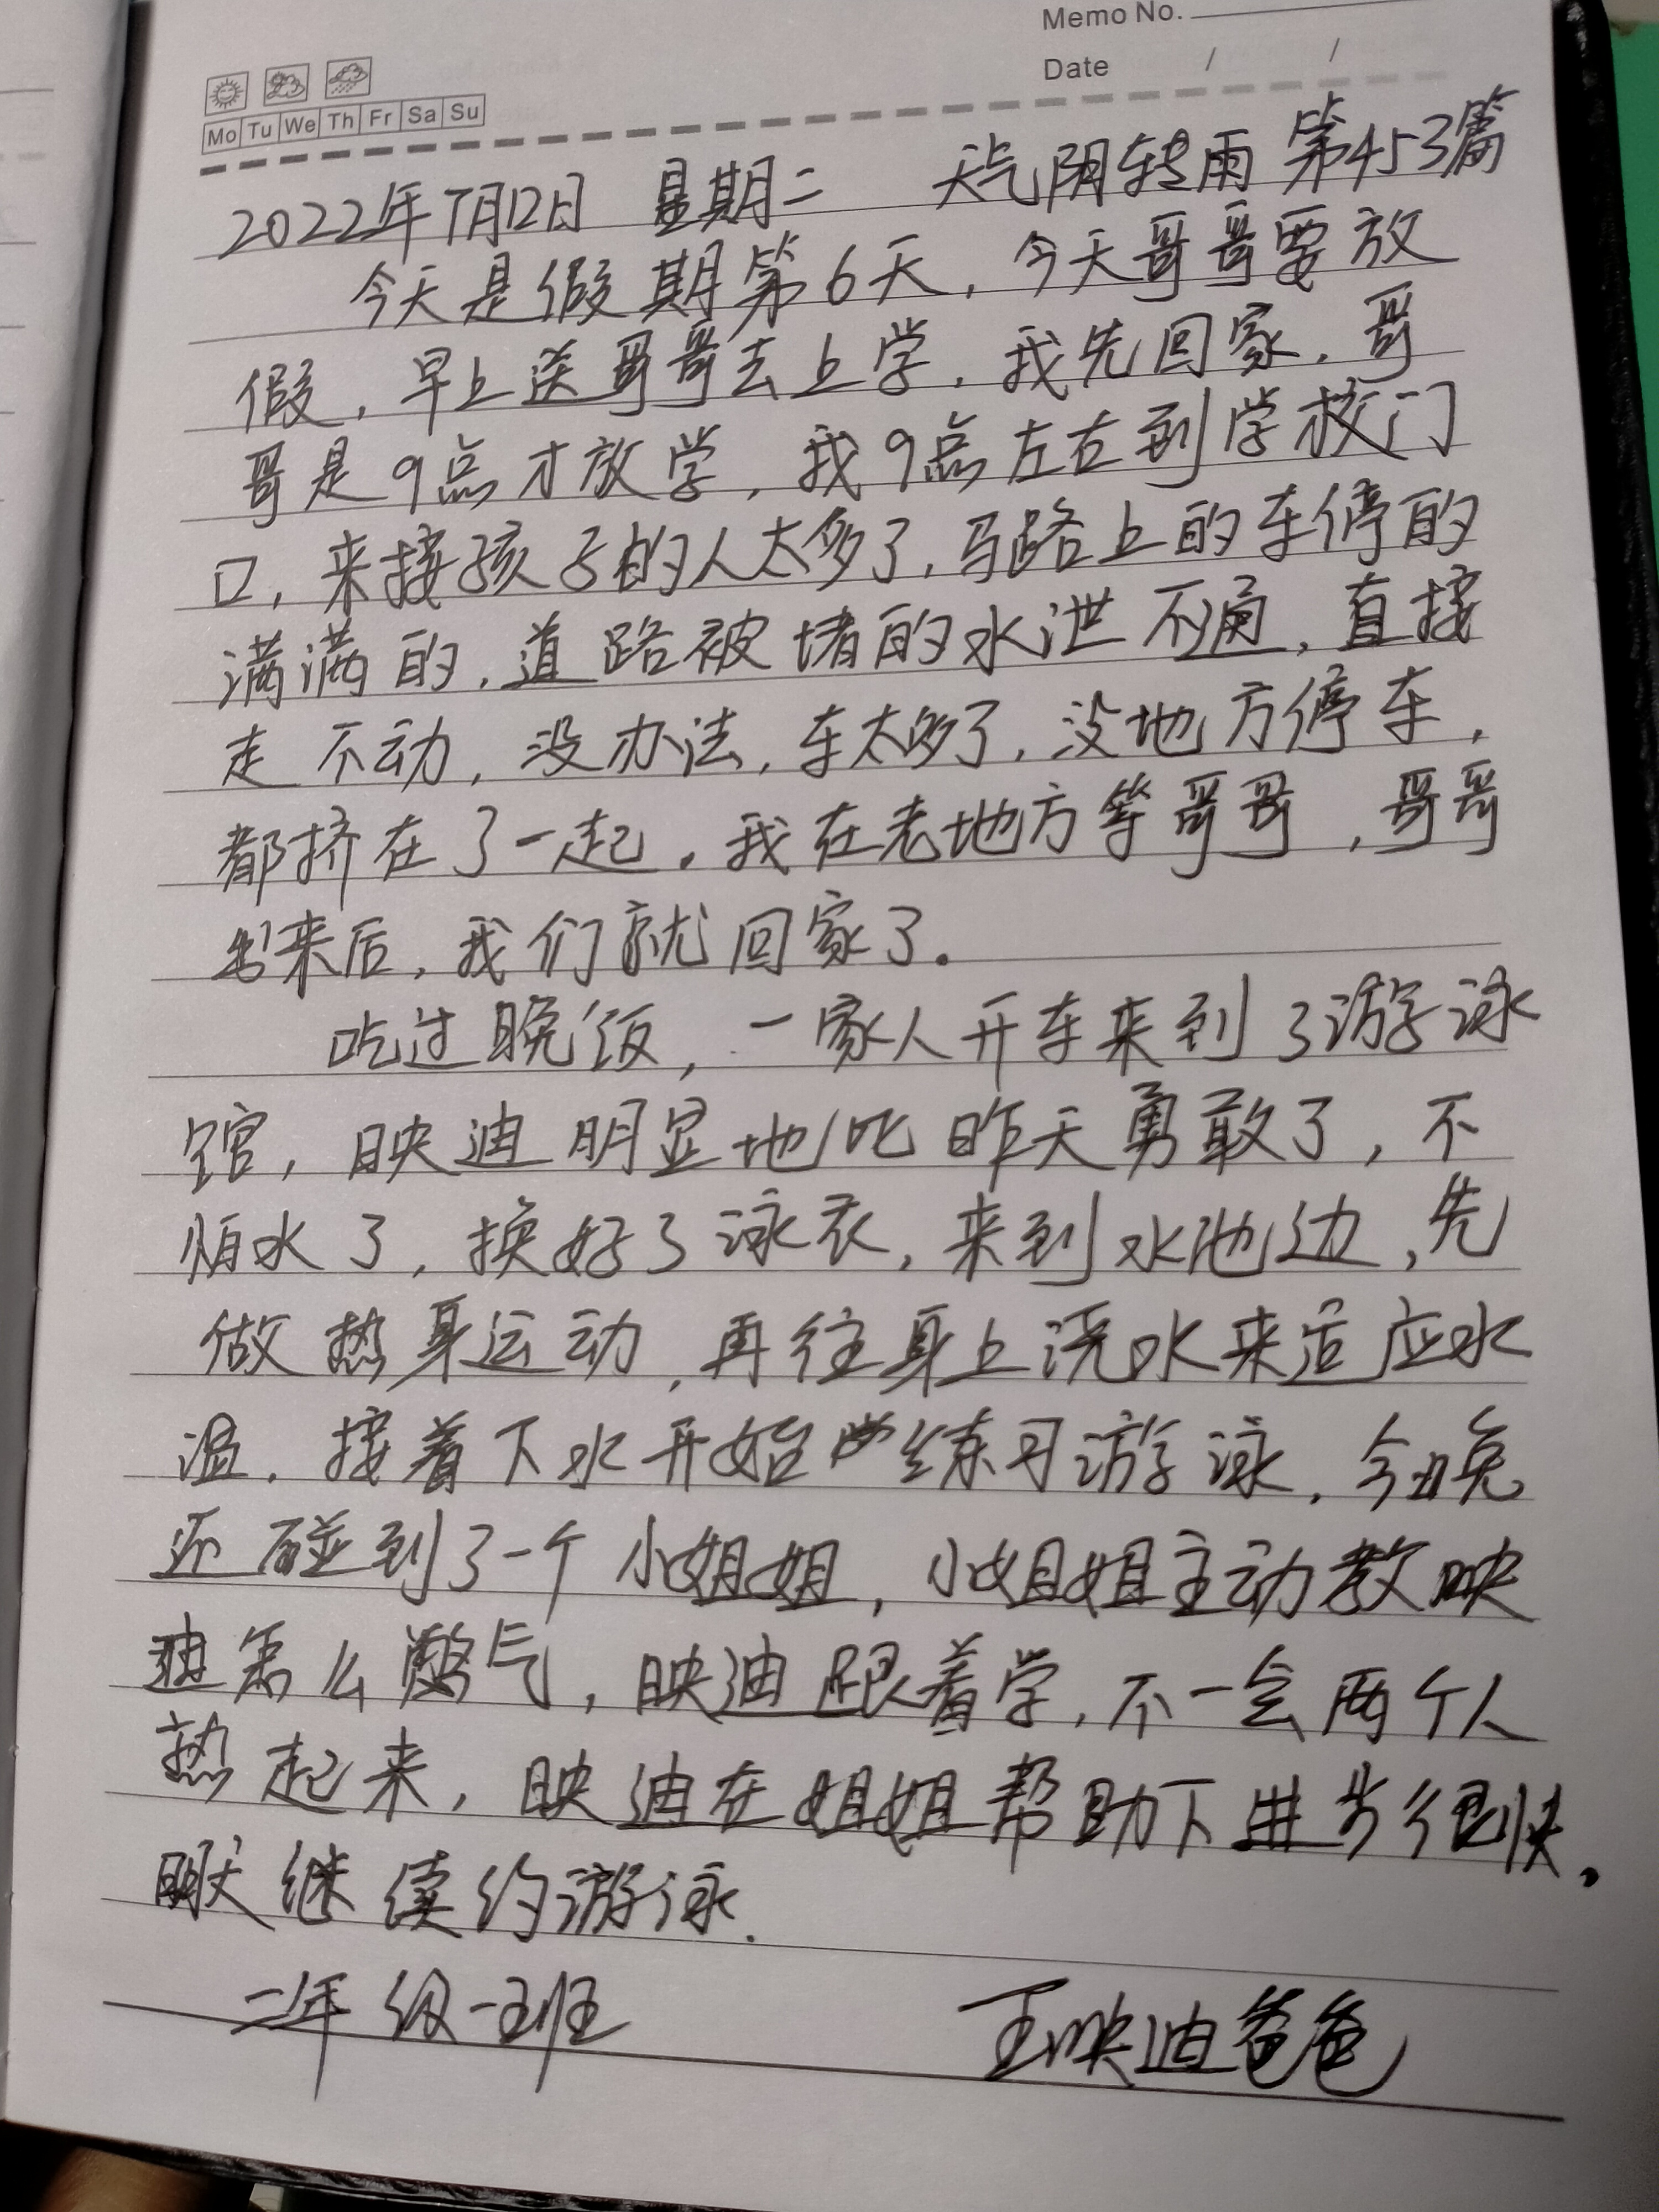 Memo No.
Date / /
Mo Tu We Th Fr Sa Su
2022年7月12日 星期二 天气阴转雨 第453篇
今天是假期第6天，今天哥哥要放
假，早上送哥哥去上学，我先回家，哥
哥是9点才放学，我9点左右到学校门
口，来接孩子的人太多了，马路上的车停的
满满的，道路被堵的水泄不通，直接
走不动，没办法，车太多了，没地方停车，
都挤在了一起。我在老地方等哥哥，哥哥
出来后，我们就回家了。
吃过晚饭，一家人开车来到了游泳
馆，映迪明显地比昨天勇敢了，不
怕水了，换好了泳衣，来到水池边，先
做热身运动，再往身上浇水来适应水
温．接着下水开始练习游泳，今晚
还碰到了一个小姐姐，小姐姐主动教映
迪怎么憋气，映迪跟着学，不一会两个人
热起来，映迪在姐姐帮助下进步很快，
明天继续约游泳．
二年级一班 王映迪爸爸